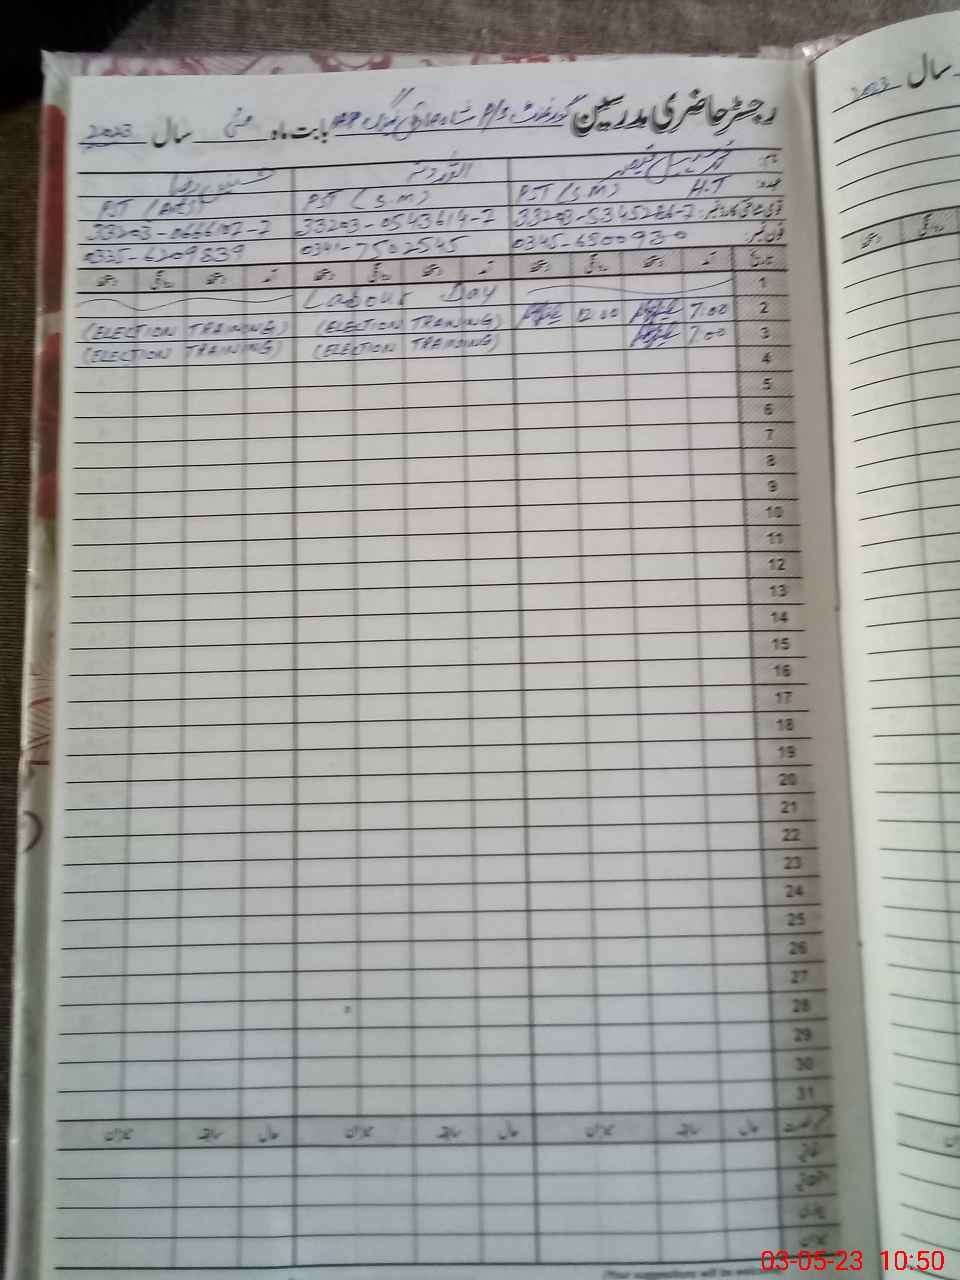 رجسٹر حاضری مدرسین گورنمنٹ P/S بابت ماہ مئی سال 2023
سال 2023
نام:
عہدہ: H.T PST (S.M) PST (S.M) PST (Arts)
33203-5345286-7 33203-0543614-7 33203-0666102-2
فون نمبر: 0345-6500930 0341-7502545 0335-6209839
تاریخ آمد دستخط روانگی دستخط آمد دستخط روانگی دستخط آمد دستخط روانگی دستخط
1 Labour Day
2 7:00 12:00 (ELECTION TRAINING) (ELECTION TRAINING)
3 7:00 (ELECTION TRAINING) (ELECTION TRAINING)
4
5
6
7
8
9
10
11
12
13
14
15
16
17
18
19
20
21
22
23
24
25
26
27
28
29
30
31
حال سابقہ میزان حال سابقہ میزان حال سابقہ میزان
اتفاقیہ
میزان
03-05-23 10:50